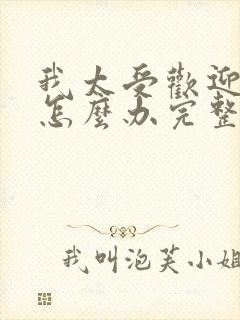 我太受歡迎
怎麼办完整
我叫泡芙小姐